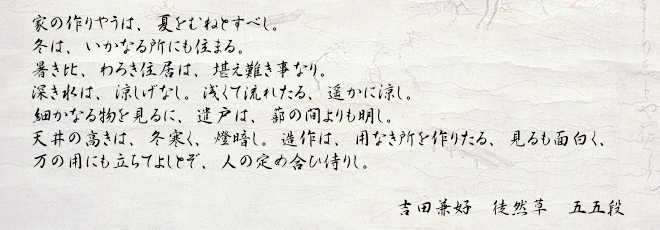 家の作りやうは、夏をむねとすべし。
冬は、いかなる所にも住まる。
暑き比、わろき住居は、堪え難き事なり。
深き水は、涼しげなし。浅くて流れたる、遥かに涼し。
細かなる物を見るに、遣戸は、蔀の間よりも明し。
天井の高きは、冬寒く、燈暗し。造作は、用なき所を作りたる、見るも面白く、
万の用にも立ちてよしとぞ、人の定め合ひ侍りし。
吉田兼好　徒然草　五五段